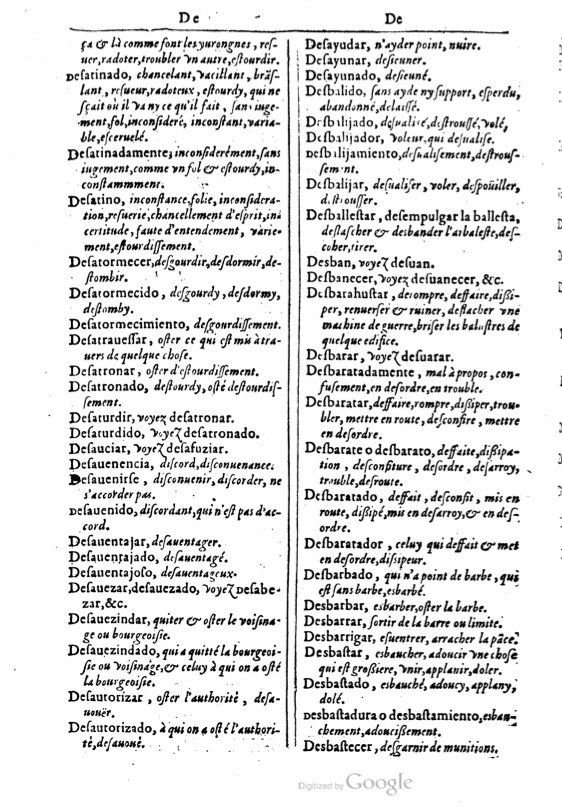 De
ça & là comme font les yurongnes, res-
uer, radoter, troubler vn autre, estourdir.
Desatinado, chancelant, vacillant, brãs-
lant, resueur, radoteux, estourdy, qui ne
sçait où il va ny ce qu'il fait, sans iuge-
ment, fol, inconsideré, inconstant, varia-
ble, esceruelé.
Desatinadamente, inconsiderément, sans
iugement, comme vn fol & estourdy, in-
constammment.
Desatino, inconstance, folie, inconsidera-
tion, resuerie, chancellement d'esprit, in-
certitude, faute d'entendement, varie-
ment, estourdissement.
Desatormecer, desgourdir, desdormir, de-
stombir.
Desatormecido, desgourdy, desdormy,
destomby.
Desatormecimiento, desgourdissement.
Desatrauessar, oster ce qui est mis à tra-
uers de quelque chose.
Desatronar, oster d'estourdissement.
Desatronado, destourdy, osté destourdis-
sement.
Desaturdir, voyez desatronar.
Desaturdido, voyez desatronado.
Desauciar, voyez desafuziar.
Desauenencia, discord, disconuenance.
Desauenirse, disconuenir, discorder, ne
s'accorder pas.
Desauenido, discordant, qui n'est pas d'ac-
cord.
Desauentajar, desauentager.
Desauentajado, desauentagé.
Desauentajoso, desauentageux.
Desauezar, desauezado, voyez Desabe-
zar, &c.
Desauezindar, quiter & oster le voisina-
ge ou bourgeoisie.
Desauezindado, qui a quitté la bourgeoi-
sie ou voisinage, & celuy à qui on a osté
la bourgeoisie.
Desautorizar, oster l'authorité, desa-
uouër.
Desautorizado, à qui on a osté l'authori-
té, desauoué.
De
Desayudar, n'ayder point, nuire.
Desayunar, desieuner.
Desayunado, desieuné.
Desbalido, sans ayde ny support, esperdu,
abandonné, delaissé.
Desbalijado, desualisé, destroussé, volé,
Desbalijador, voleur, qui desualise.
Desbalijamiento, desualisement, destrous-
sement.
Desbalijar, desualiser, voler, despoüiller,
destrousser.
Desballestar, desempulgar la ballesta,
deslascher & desbander l'arbaleste, des-
cocher, tirer.
Desban, voyez desuan.
Desbanecer, voyez desuanecer, &c.
Desbarahustar, derompre, deffaire, dissi-
per, renuerser & ruiner, deslacher vne
machine de guerre, briser les balustres de
quelque edifice.
Desbarar, voyez desuarar.
Desbaratadamente, mal à propos, con-
fusement, en desordre, en trouble.
Desbaratar, deffaire, rompre, dissiper, trou-
bler, mettre en route, desconfire, mettre
en desordre.
Desbarate o desbarato, deffaite, dissipa-
tion, desconfiture, desordre, desarroy,
trouble, desroute.
Desbaratado, deffait, desconfit, mis en
route, dissipé, mis en desarroy, & en des-
ordre.
Desbaratador, celuy qui deffait & met
en desordre, dissipeur.
Desbarbado, qui n'a point de barbe, qui
est sans barbe, esbarbé.
Desbarbar, esbarber, oster la barbe.
Desbarrar, sortir de la barre ou limite.
Desbarrigar, esuentrer, arracher la pãce.
Desbastar, esbaucher, adoucir vne chose
qui est grossiere, vnir, applanir, doler.
Desbastado, esbauché, adoucy, applany,
dolé.
Desbastadura o desbastamiento, esbau-
chement, adoucissement.
Desbastecer, desgarnir de munitions.
Digitized by Google